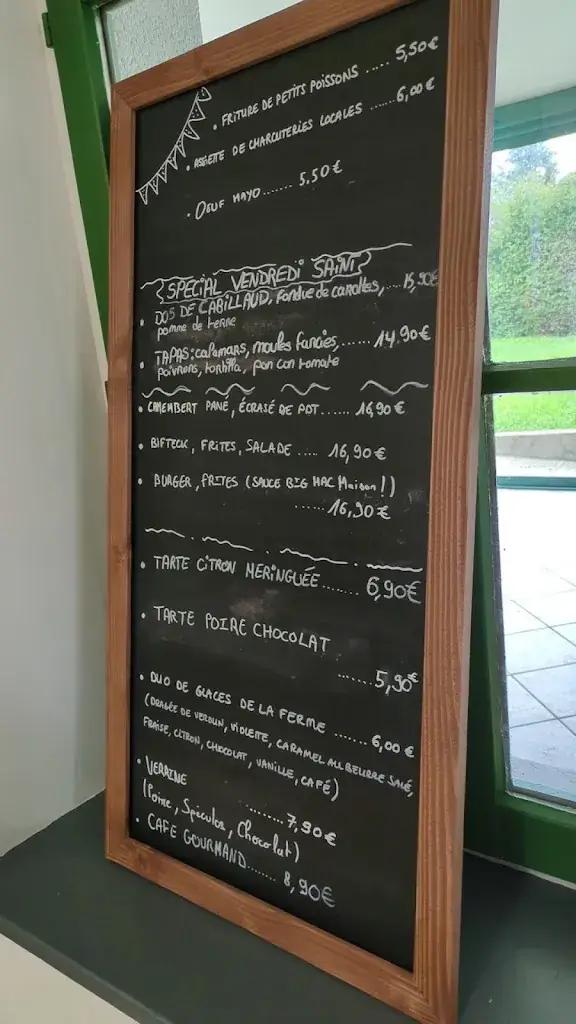 • FRITURE DE PETITS POISSONS ..... 5,50€
• ASSIETTE DE CHARCUTERIES LOCALES ...... 6,00€
• OEUF MAYO ....... 5.50€
SPECIAL VENDREDI SAINT
• DOS DE CABILLAUD, fondue de carottes, ... 15,90€
pomme de terre
• TAPAS: calamars, moules farcies, ...... 14.90€
poivrons, tortilla, pan con tomate
• CAMEMBERT PANÉ, ÉCRASÉ DE PDT ...... 16,90€
• BIFTECK, FRITES, SALADE ..... 16,90€
• BURGER, FRITES (SAUCE BIG MAC Maison!)
...... 16,90€
• TARTE CITRON MERINGUÉE ....... 6,90€
• TARTE POIRE CHOCOLAT
....... 5,90€
• DUO DE GLACES DE LA FERME ....... 6,00€
(DRAGÉE DE VERDUN, VIOLETTE, CARAMEL AU BEURRE SALÉ,
FRAISE, CITRON, CHOCOLAT, VANILLE, CAFÉ)
• VERRINE
........ 7,90€
(Poire, Spéculos, Chocolat)
• CAFE GOURMAND ....... 8,90€